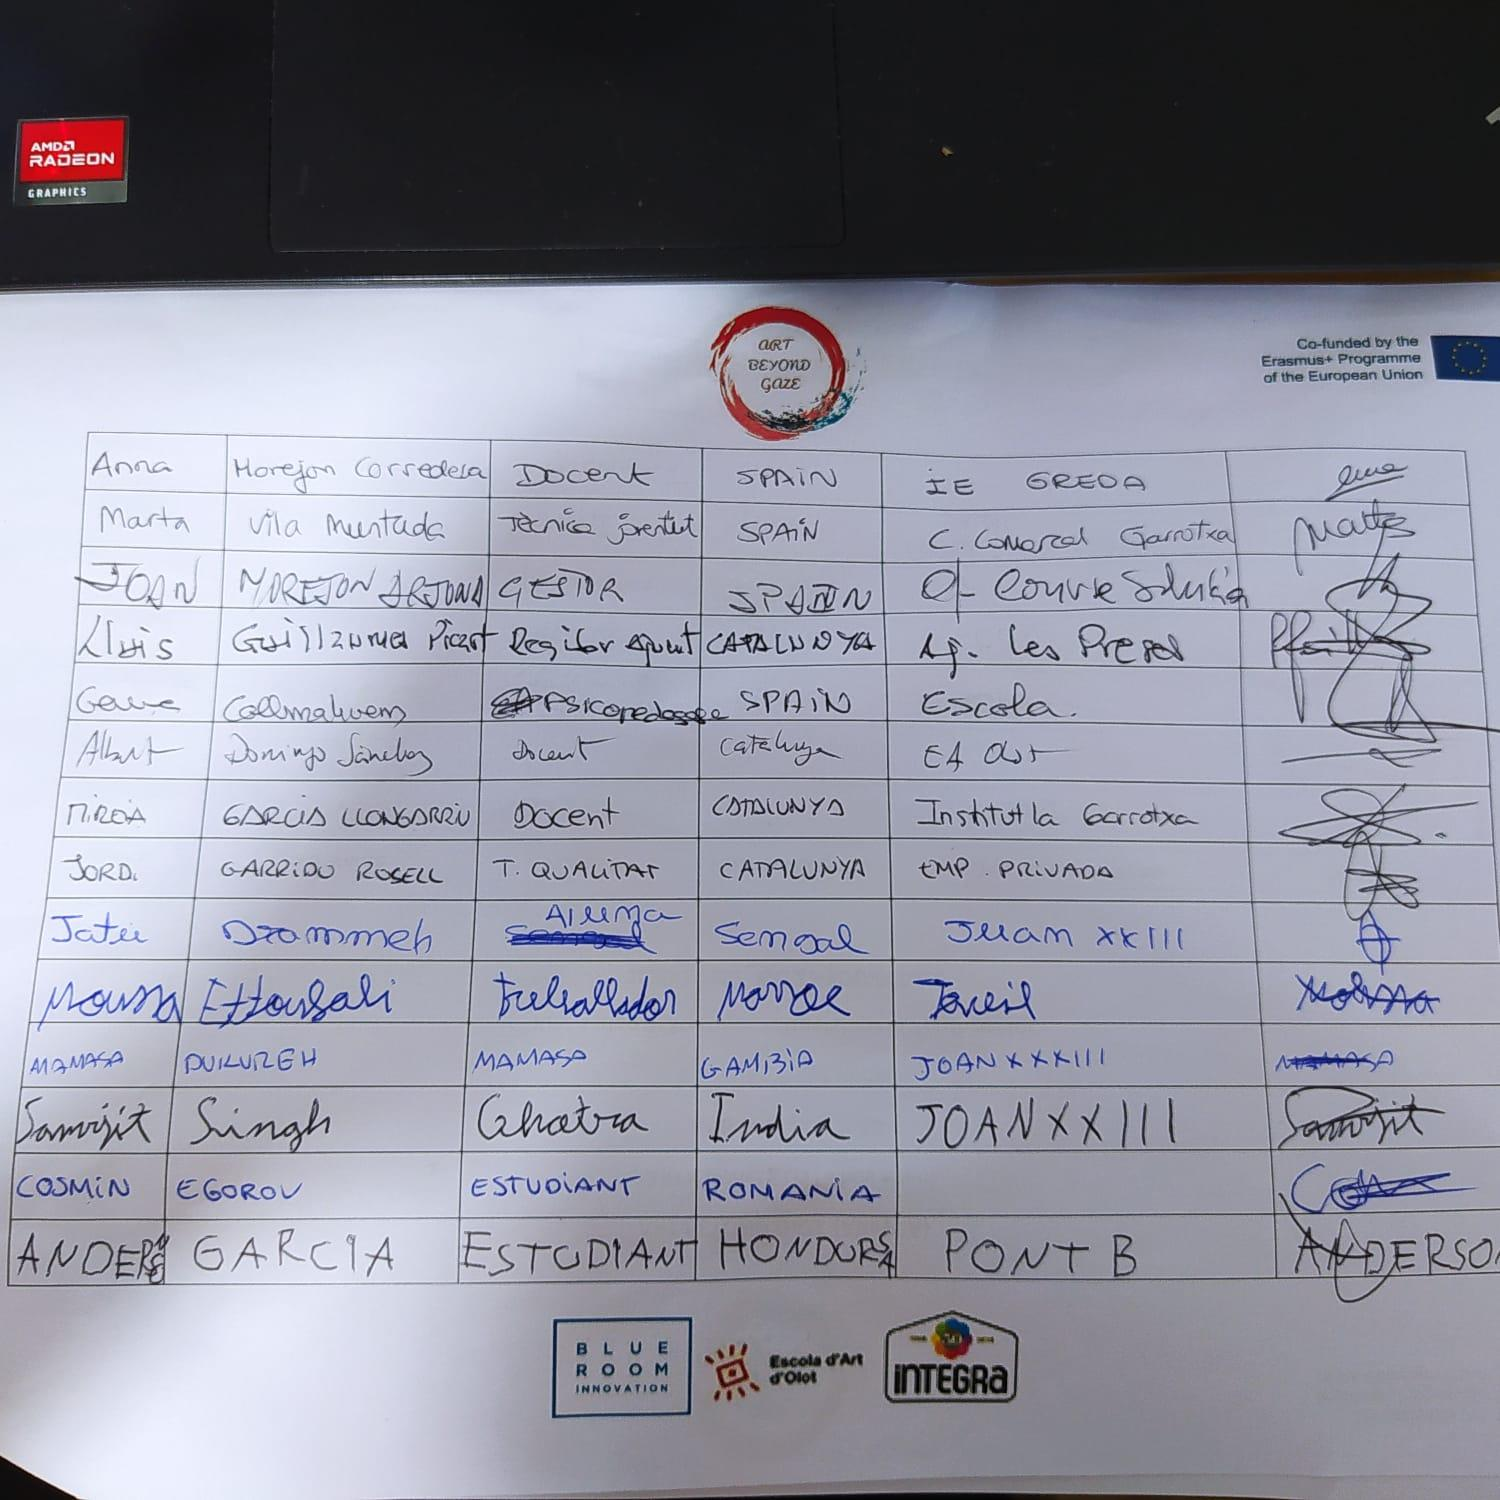 AMD
RADEON
GRAPHICS
ART
BEYOND
GAZE
Co-funded by the
Erasmus+ Programme
of the European Union
Anna Morejon Corredera Docent SPAIN IE GREDA
Marta Vila Muntada Tècnica joventut SPAIN C. Comarcal Garrotxa Marta
JOAN MOREJON ARJONA GESTOR SPAIN
Lluis Guillaumes Picart Regidor Ajunt CATALUNYA Aj. Les Preses
Collmalivern Psicopedagoga SPAIN Escola.
Albert Domingo Sánchez Docent Catalunya EA Olot
MIREIA GARCIA LLONGARRIU Docent CATALUNYA Institut la Garrotxa
JORDI GARRIDO ROSELL T. QUALITAT CATALUNYA EMP. PRIVADA
Jatu Drammeh Alumna Senegal Juan XXIII
Moussa Treballador
MAMASA DUKUREH MAMASA GAMBIA JOAN XXXIII MAMASA
Samrjit Singh Ghotra India JOAN XXIII Samrjit
COSMIN EGOROV ESTUDIANT ROMANIA
ANDERSON GARCIA ESTUDIANT HONDURAS PONT B ANDERSON
BLUE
ROOM
INNOVATION
Escola d'Art
d'Olot
INTEGRA